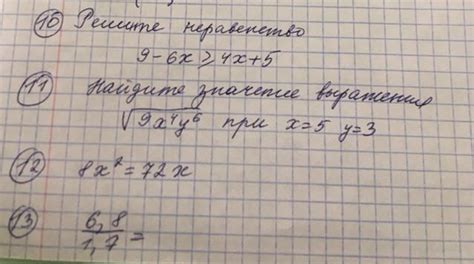 10 Решите неравенство
9-6x⩾4x+5
11 Найдите значение выражения
√9x⁴y⁶ при x=5 y=3
12 8x²=72x
13 6,8/1,7=